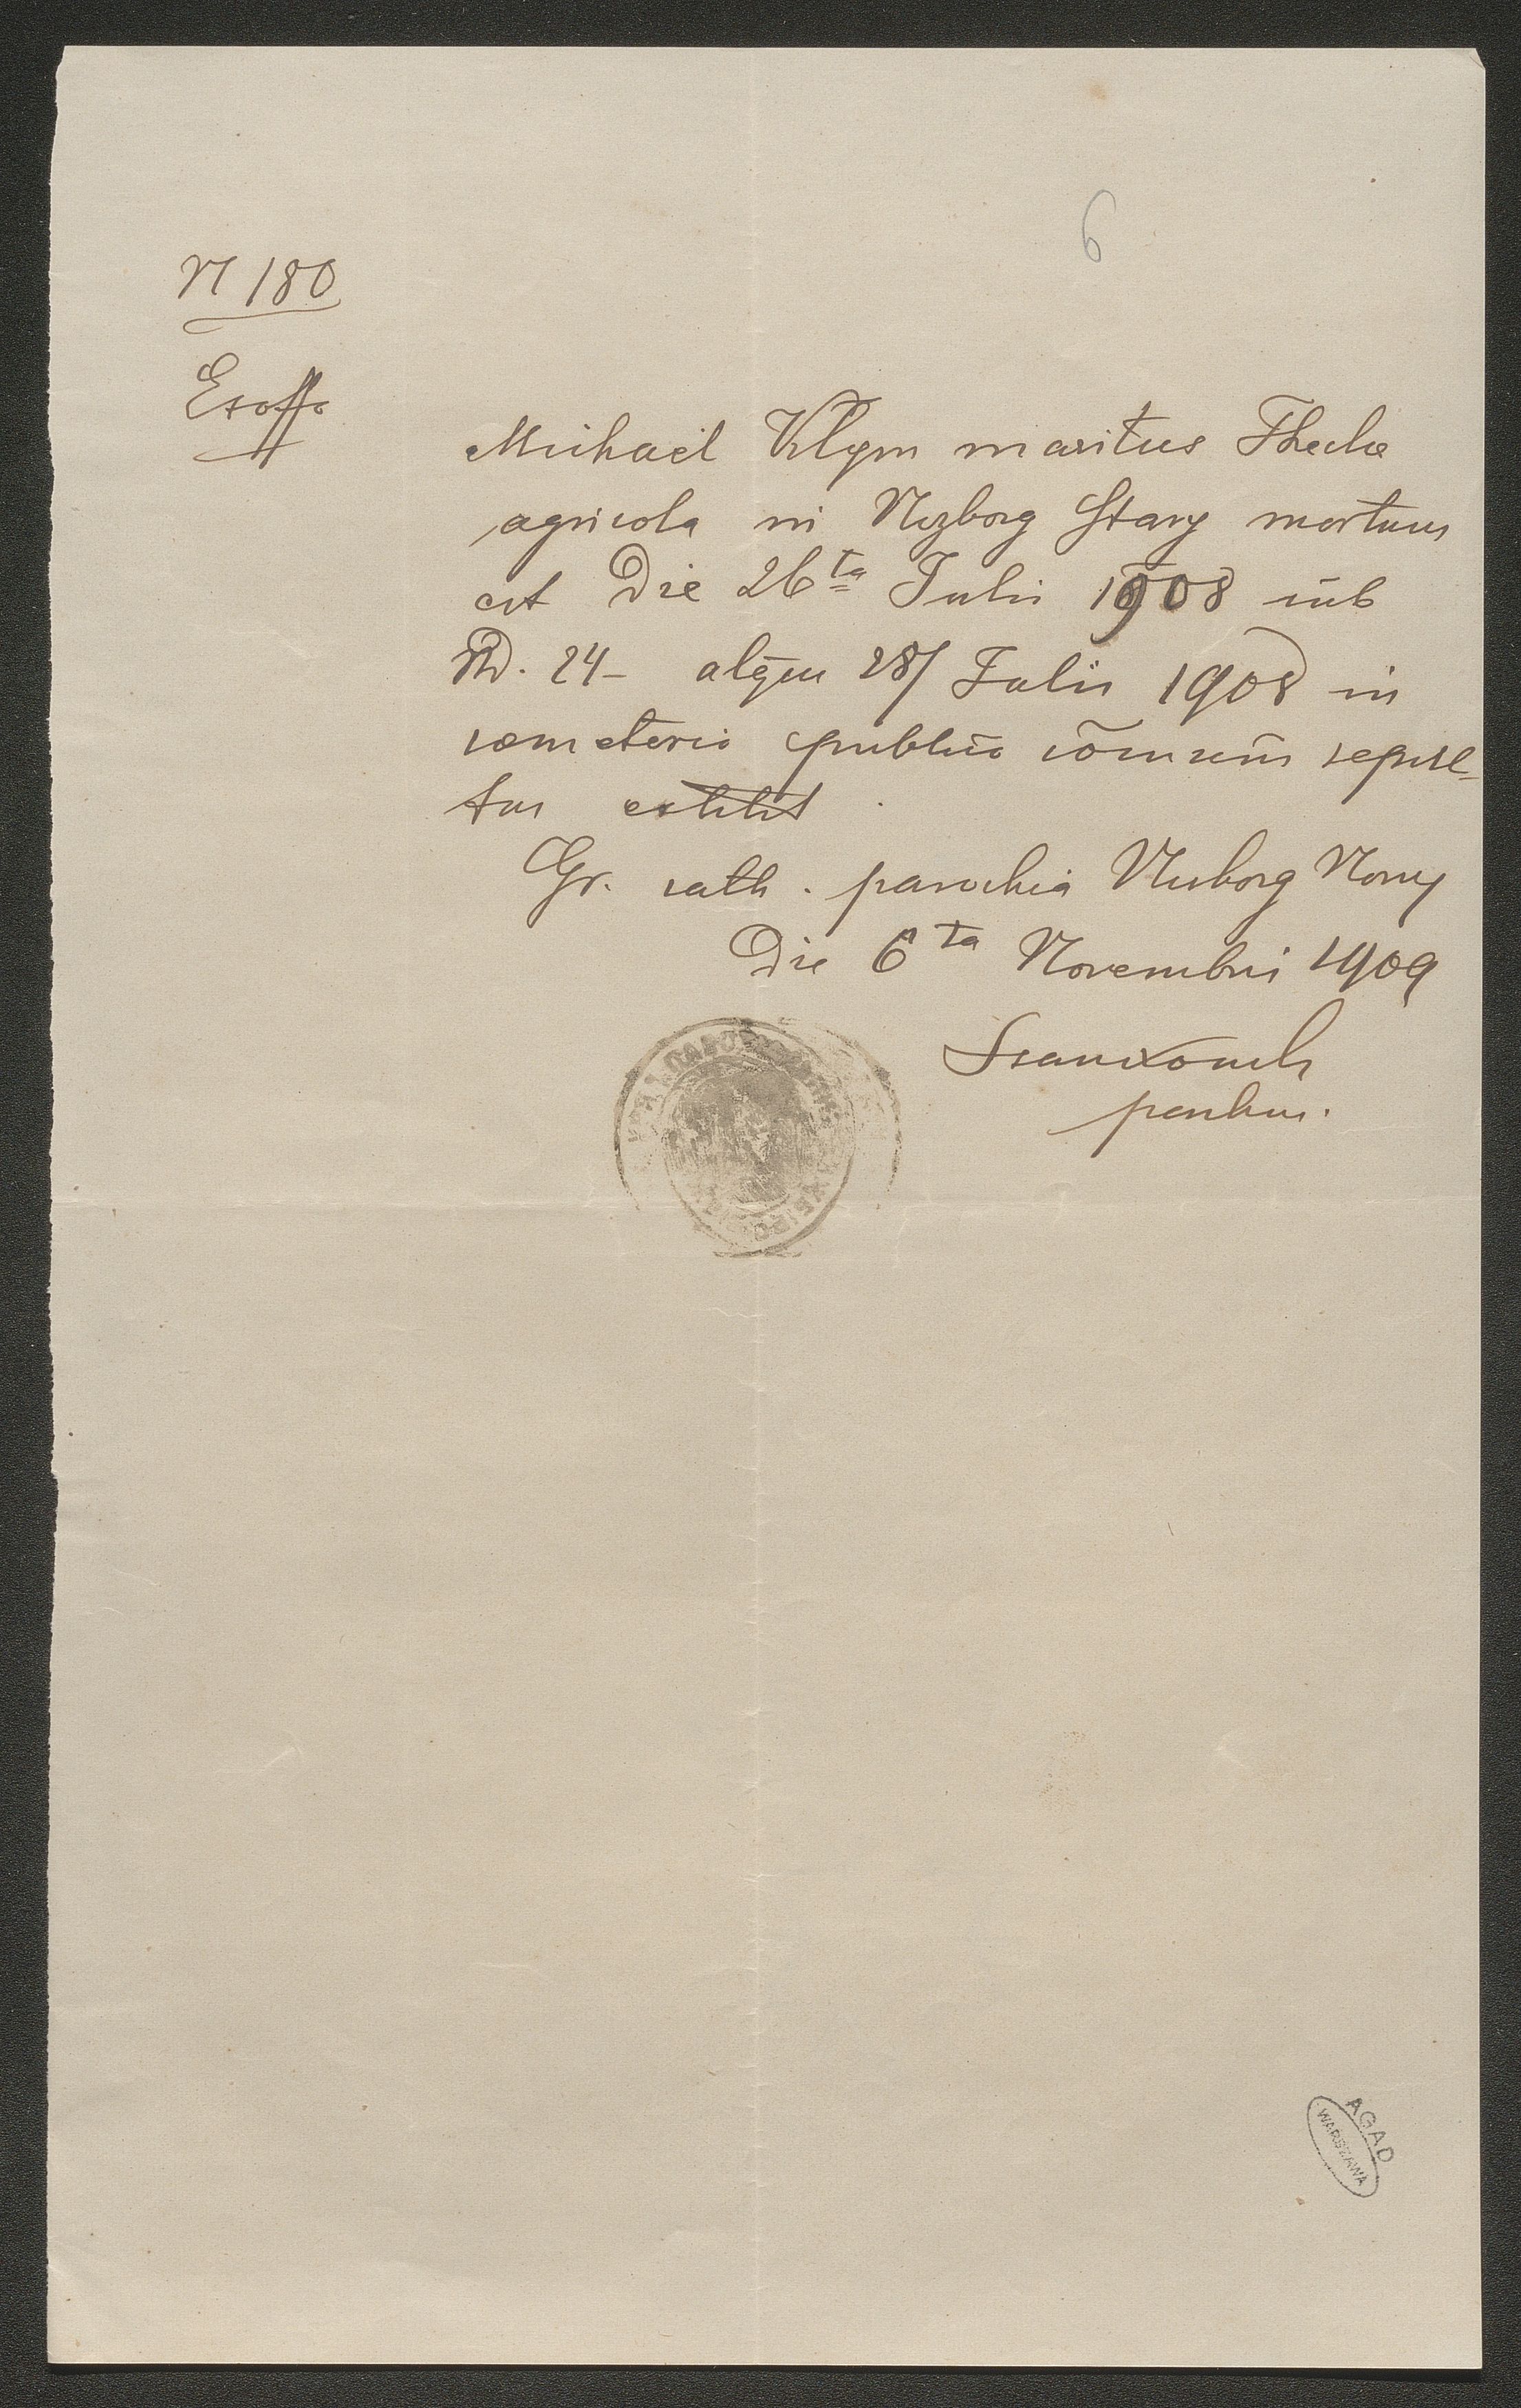 6
N 180
Ex offo
Michael Klym maritus Theclae
agricola in Nyzborg Stary mortuus
est Die 26ta Julii 1908 sub
Nd. 24 - atque 28/ Julii 1908 in
coemeterio publico comuni sepul-
tus extitit.
Gr. cath. parochia Nizborg Nowy
Die 6ta Novembris 1909
parochus.
AGAD
WARSZAWA